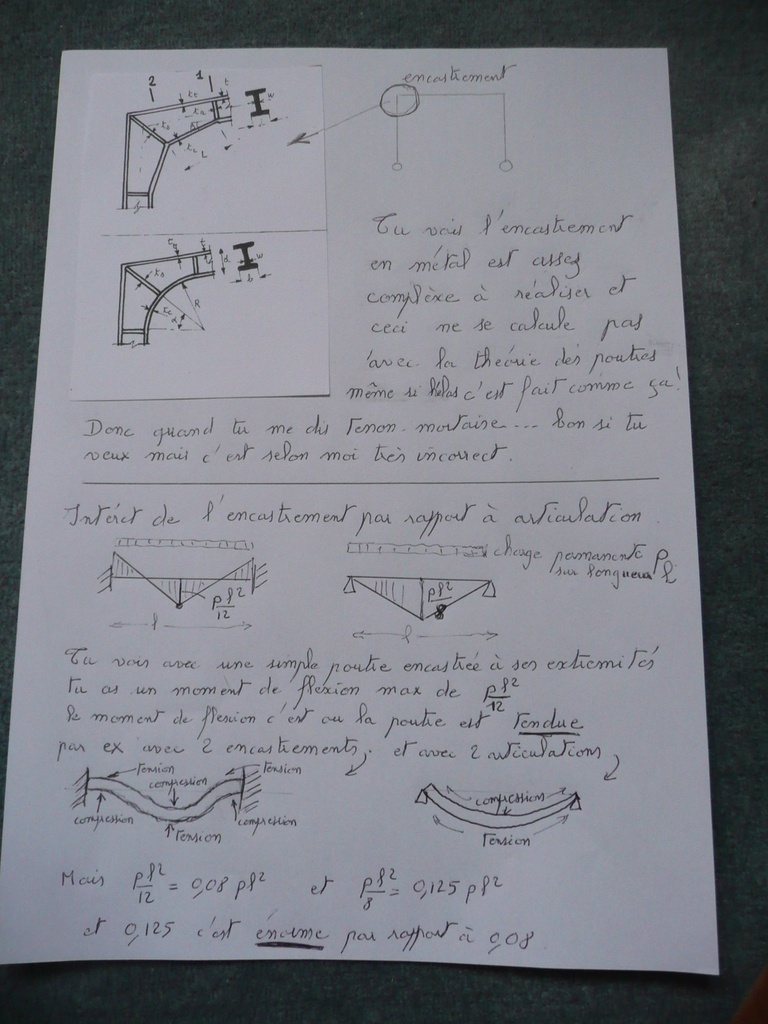 encastrement
2 1
Tu vois l'encastrement
en métal est assez
complèxe à réaliser et
ceci ne se calcule pas
avec la théorie des poutres
même si hélas c'est fait comme ça!
Donc quand tu me dis Tenon-mortaise... bon si tu
veux mais c'est selon moi très incorrect.
Intérêt de l'encastrement par rapport à articulation.
charge permanente p
sur longueur l
pl²/12
pl²/8
l
l
Tu vois avec une simple poutre encastrée à ses extremités
tu as un moment de flexion max de pl²/12
le moment de flexion c'est ou la poutre est Tendue
par ex avec 2 encastrements, et avec 2 articulations,
Tension compression Tension
compression Tension compression
compression
Tension
Mais pl²/12 = 0,08 pl² et pl²/8 = 0,125 pl²
et 0,125 c'est énorme par rapport à 0,08